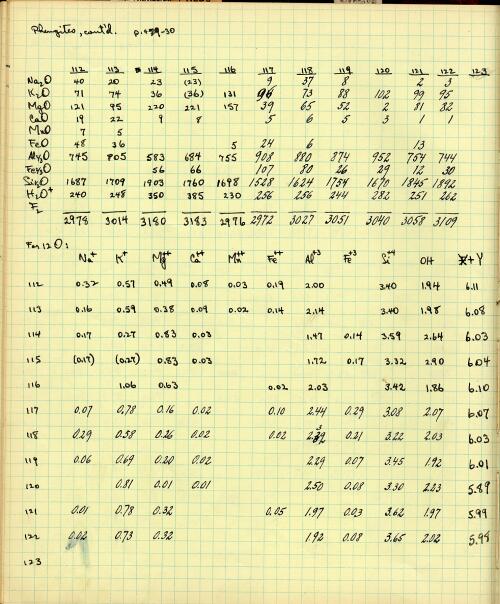 Phengites, cont'd. p. 429-30
112 113 114 115 116 117 118 119 120 121 122 123
Na2O 40 20 23 (23) 9 37 8 2 3
K2O 71 74 36 (36) 131 96 73 88 102 99 95
MgO 121 95 220 221 157 39 65 52 2 81 82
CaO 19 22 9 8 5 6 5 3 1 1
MnO 7 5
FeO 48 36 5 24 6 13
Al2O3 745 805 583 684 755 908 880 874 952 754 744
Fe2O3 56 66 107 80 26 29 12 30
SiO2 1687 1709 1903 1760 1698 1528 1624 1754 1670 1845 1892
H2O+ 240 248 350 385 230 256 256 244 282 251 262
F2
2978 3014 3180 3183 2976 2972 3027 3051 3040 3058 3109
For 12 O:
Na+ K+ Mg++ Ca++ Mn++ Fe++ Al+3 Fe+3 Si+4 OH X+Y
112 0.32 0.57 0.49 0.08 0.03 0.19 2.00 3.40 1.94 6.11
113 0.16 0.59 0.38 0.09 0.02 0.14 2.14 3.40 1.98 6.08
114 0.17 0.27 0.83 0.03 1.47 0.14 3.59 2.64 6.03
115 (0.17) (0.27) 0.83 0.03 1.72 0.17 3.32 2.90 6.04
116 1.06 0.63 0.02 2.03 3.42 1.86 6.10
117 0.07 0.78 0.16 0.02 0.10 2.44 0.29 3.08 2.07 6.07
118 0.29 0.58 0.26 0.02 0.02 0.21 3.22 2.03 6.03
119 0.06 0.69 0.20 0.02 2.29 0.07 3.45 1.92 6.01
120 0.81 0.01 0.01 2.50 0.08 3.30 2.23 5.89
121 0.01 0.78 0.32 0.05 1.97 0.03 3.62 1.97 5.99
122 0.02 0.73 0.32 1.92 0.08 3.65 2.02 5.98
123